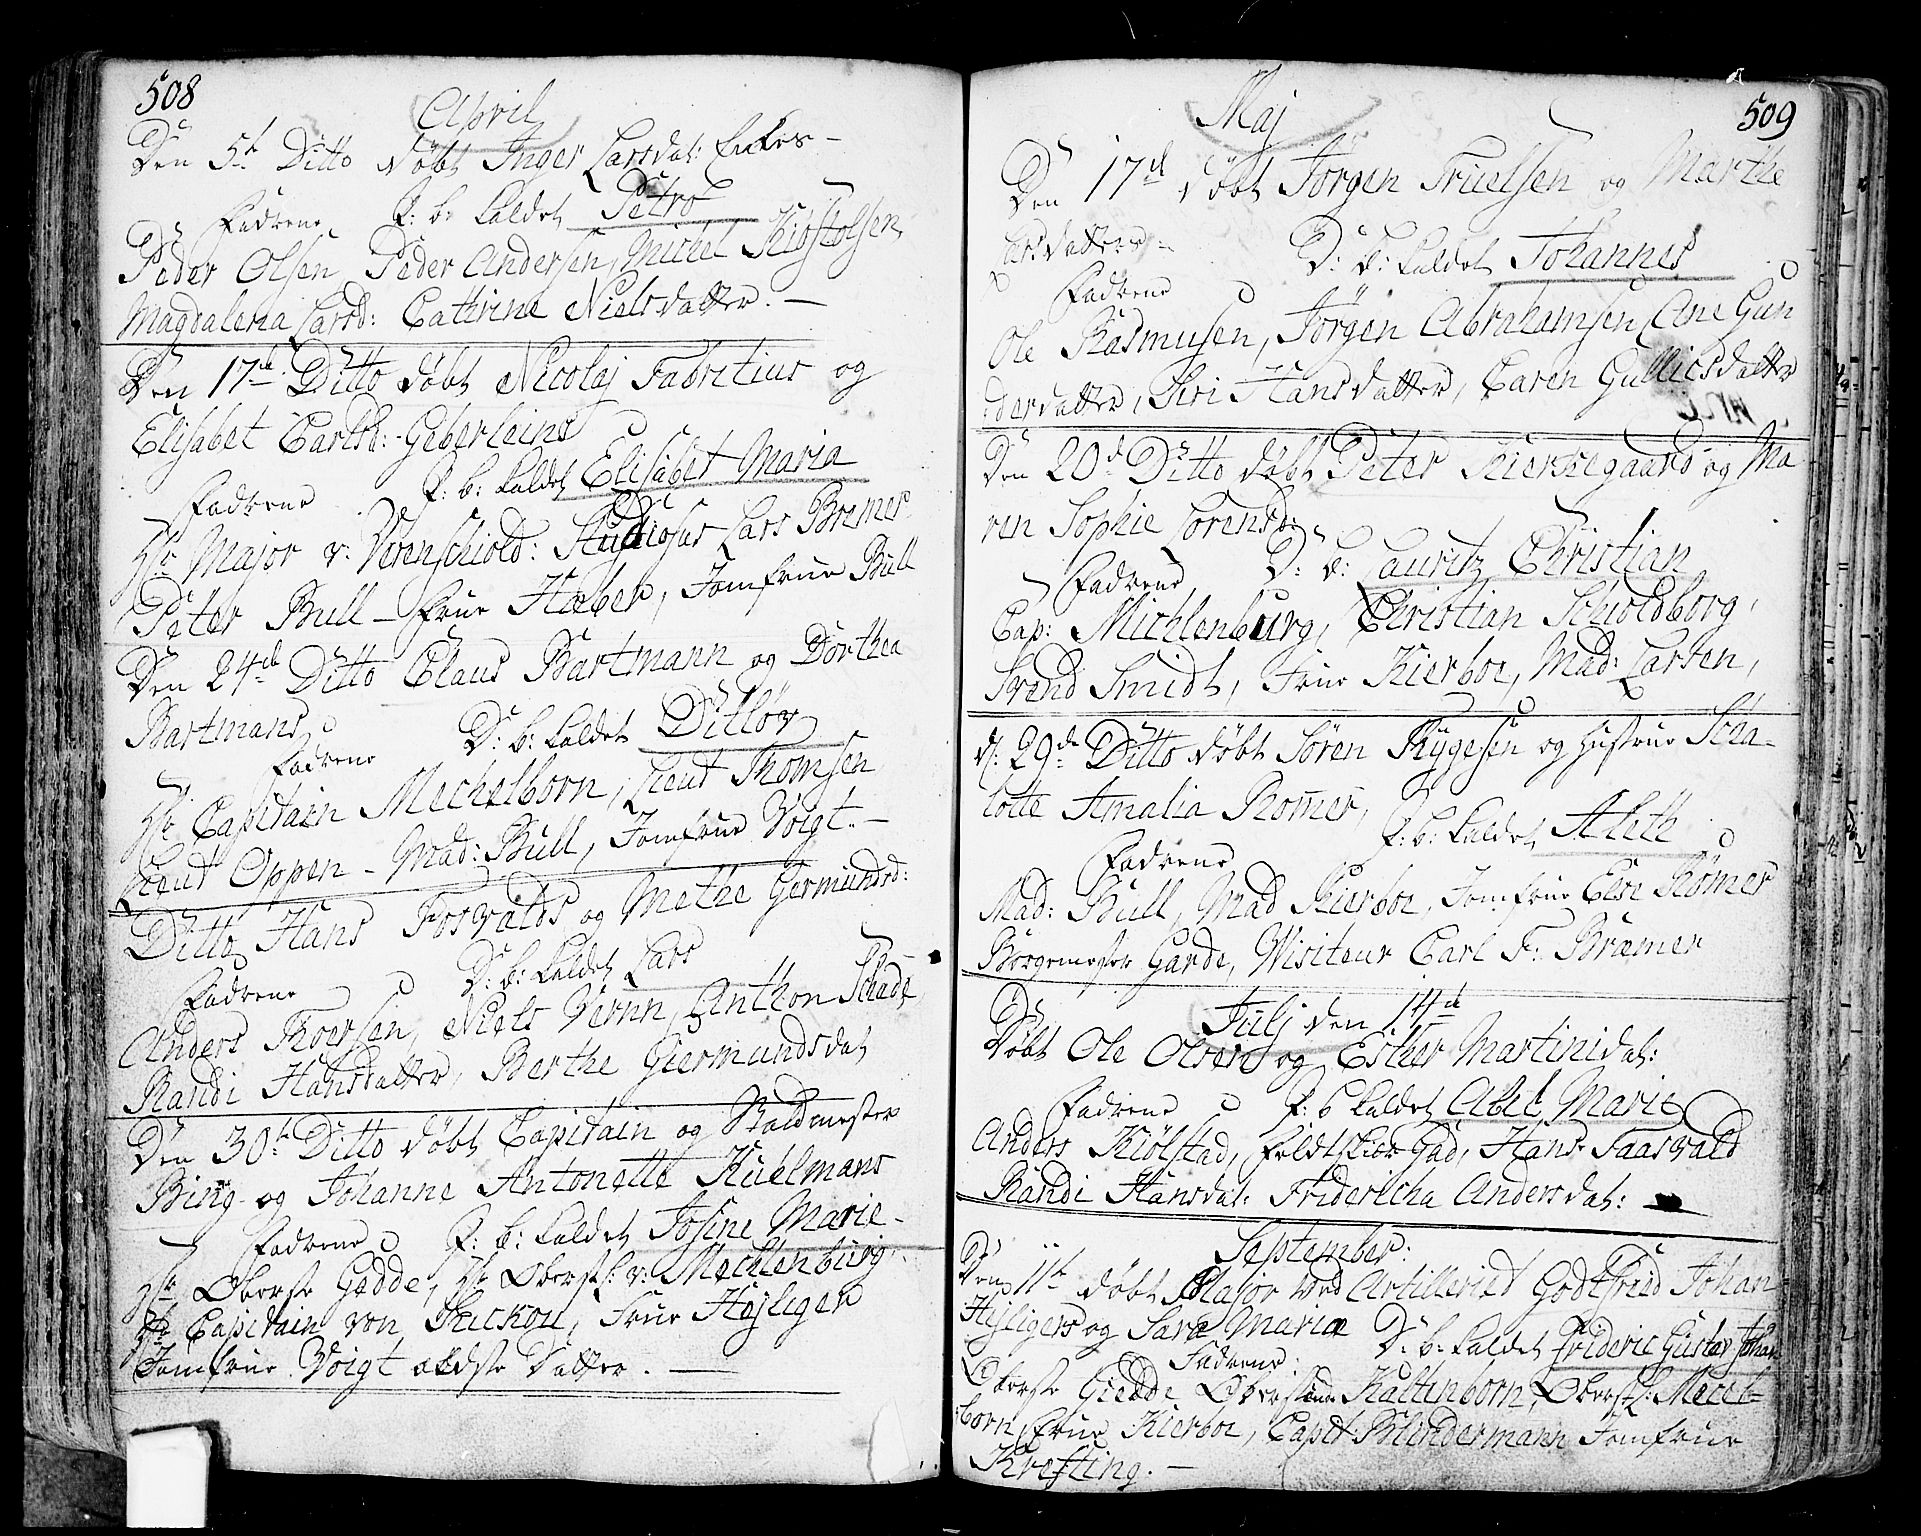 508
April
Den 5t Ditto døbt Inger Larsdat: Enkes -
Fadrene D: b: kaldet Petro
Peder Olsen, Peder Andersen, Michel Kiostolsen
Magdalena Larsd: Cathrine Nielsdatter. -
Den 17de Ditto døbt Nicolaj Fabritius og
Elisabet Carlsd: Geberleins
Fadrene D: b: kaldet Elisabet Maria
Hr Major v: Verenschiold: Studiosus Lars Bremer
Peter Bull - Frue Hæber, Jomfrue Bull
Den 24de Ditto Claus Bartmann og Dorthea
Bartmans
Fadrene D: b: kaldet Ditløv
Hr Capitain Mechelborn, Lieut Thomsen
Lieut Oppen - Mad: Bull, Jomfrue Voigt. -
Ditto Hans Fosvalds og Methe Germundsd:
Fadrene D: b: kaldet Lars
Anders Thoersen, Niels Vernn, Anthon Schade
Randi Hansdatter, Berthe Giermundsdat
Den 30te Ditto døbt Capitain og Staldmester
Bing og Johanne Antonette Kuelmans
Fadrene D: b: kaldet Josine Marie -
Hr Oberste Gedde, Hr Oberstl: v: Mechlenburg,
Hr Capitain von Kuckou, Frue Hejliger
Jomfrue Voigt ældste Datter. -
509
Maj
Den 17de døbt Jørgen Truelsen og Marthe
Larsdatter -
Fadrene D: b: kaldet Johannes
Ole Rasmusen, Jørgen Abrahamsen, Ane Gun
derdatter, Siri Hansdatter, Caren Gullicsdatter
Den 20d Ditto døbt Peter Kierkegaard og Ma
ren Sophie Lorensd:
Fadrene D: k: Lauritz Christian
Cap: Michlenburg, Christian Schioldborg,
Svend Smidt, Frue Kierboe, Mad: Larsen,
d. 29de Ditto døbt Søren Rygesen og Hustrue Scha-
lotte Amalia Romer,
Fadrene D: b: kaldet Aleth
Mad: Bull, Mad Kierboe, Jomfrue Else Rømer
Borgemester Garde, Visiteur Carl F: Bræmer
Julj den 14de
Døbt Ole Olsens og Esther Martinidat:
Fadrene D: b kaldet Abel Marie
Anders Kiølstad, Feldtskiær Gad, Hans Faasvald
Randi Hansdat: Fridericha Andersdat:
September:
Den 11te døbt Major ved Artilleriet Godtfried Johan
Hejligers og Sara Maria D: b: kaldet Frideric Gustav Johan
Fadrene:
Oberste Giedde Oberstinde Kaltenborn, Oberstl: Mecel-
born, Frue Kierboe, Capit: Blindermann Jomfrue
Krefting. -